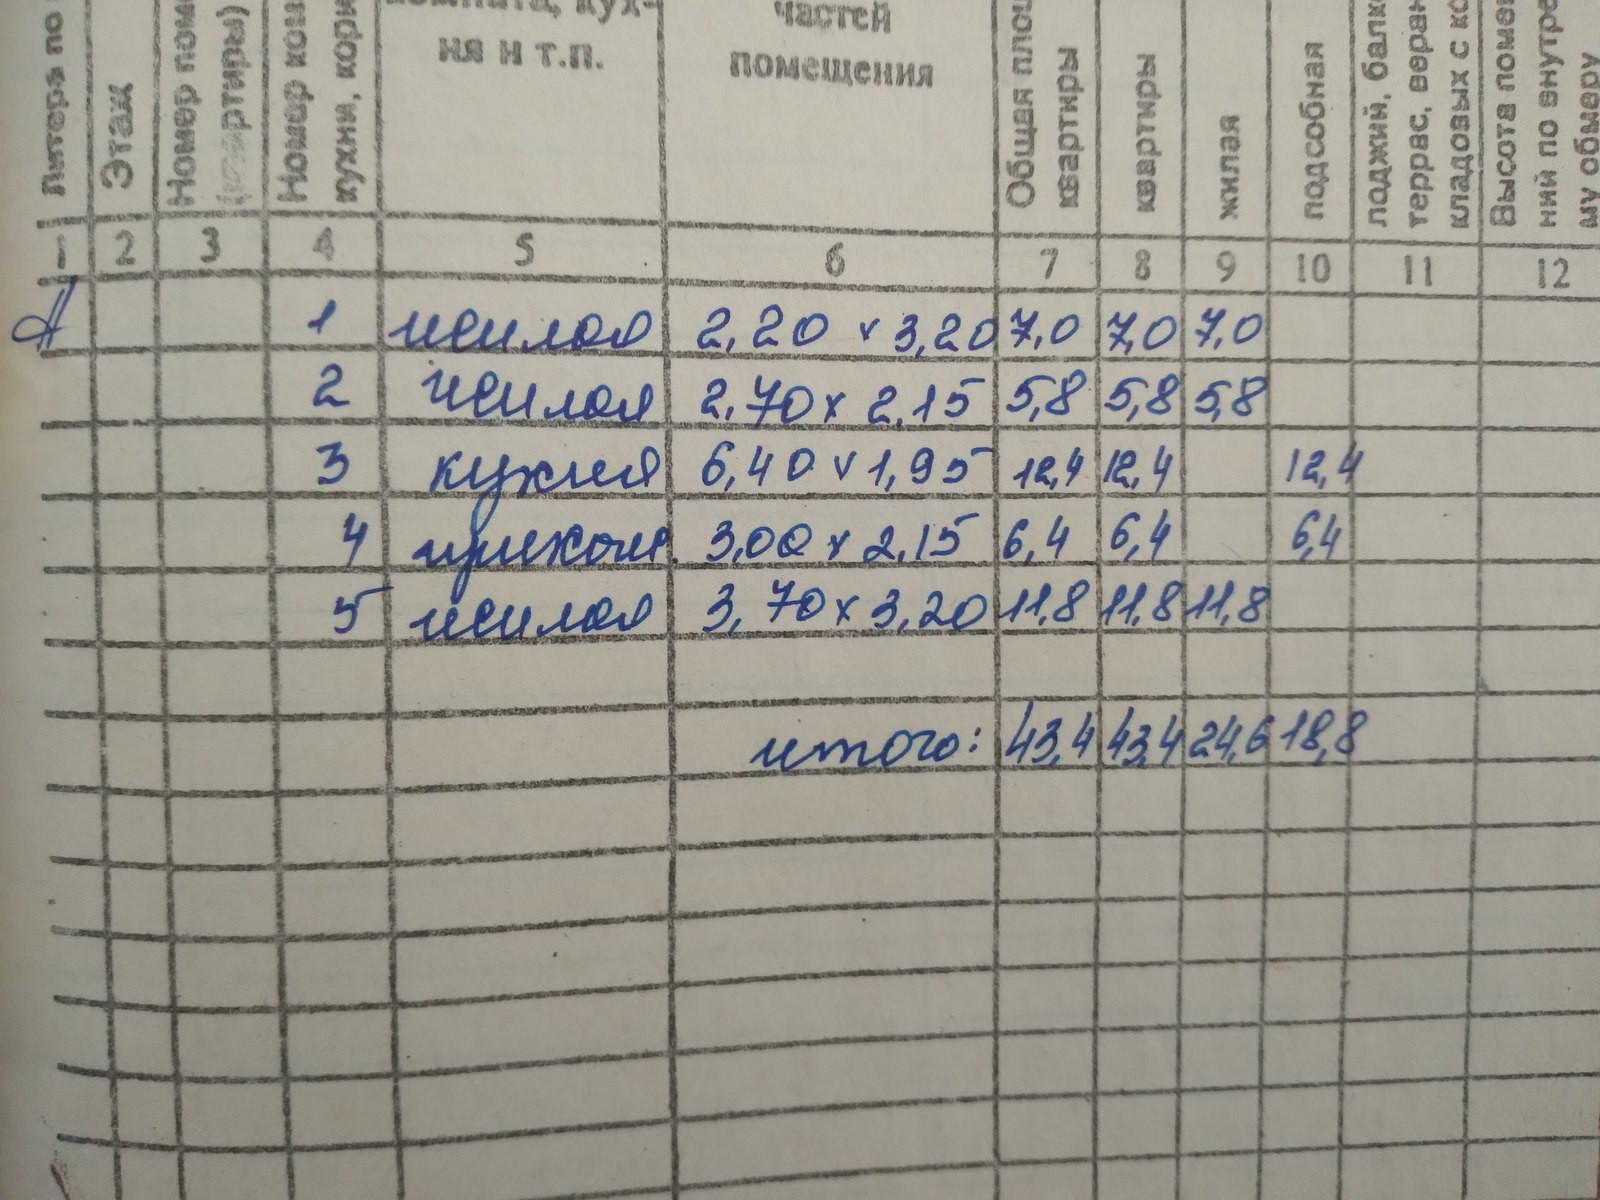 Литера по
Этаж
Номер поме
(квартиры)
Номер ком
кухни, кори
комната, кух-
ня и т.п.
частей
помещения
Общая площ
квартиры
квартиры
жилая
подсобная
лоджий, балко
террас, веран
кладовых с ко
Высота помещ
ний по внутре
му обмеру
1 2 3 4 5 6 7 8 9 10 11 12
А 1 жилая 2,20 x 3,20 7,0 7,0 7,0
2 жилая 2,70 x 2,15 5,8 5,8 5,8
3 кухня 6,40 x 1,95 12,4 12,4 12,4
4 прихож. 3,00 x 2,15 6,4 6,4 6,4
5 жилая 3,70 x 3,20 11,8 11,8 11,8
итого: 43,4 43,4 24,6 18,8